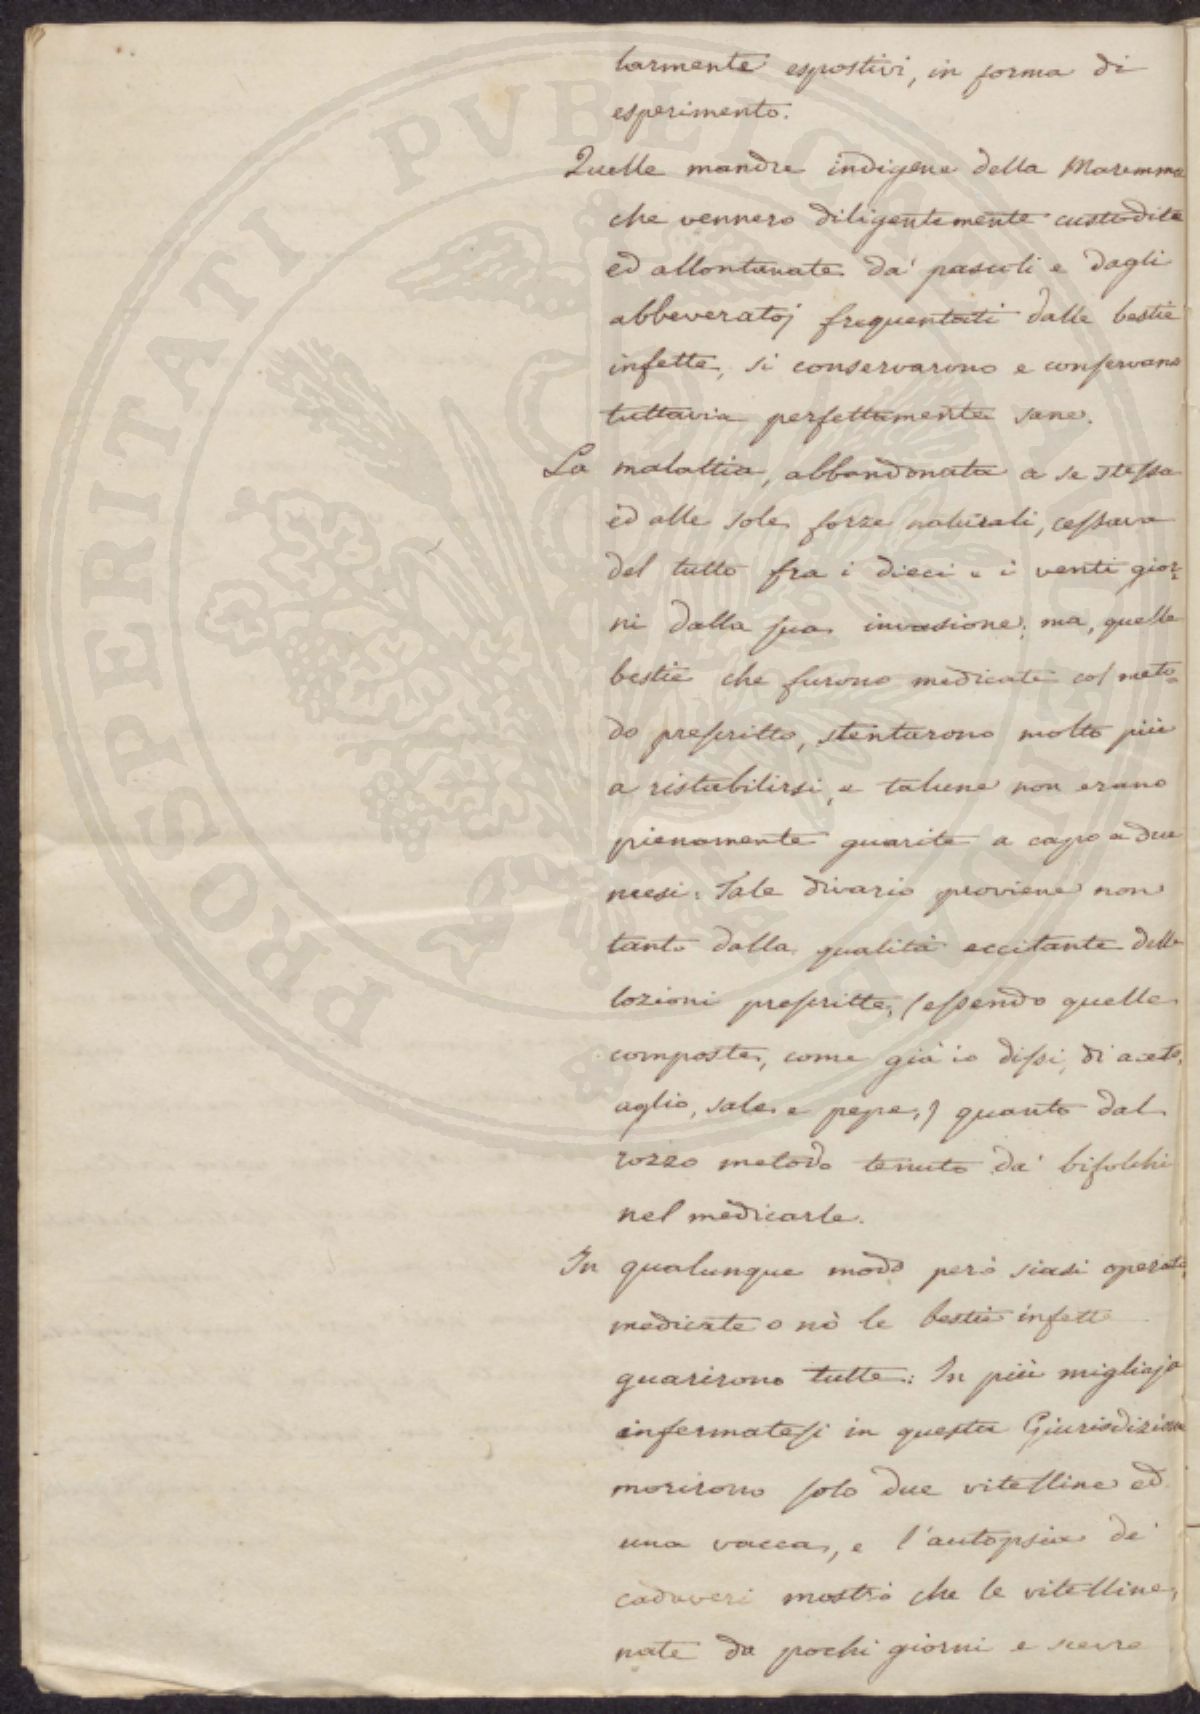 larmente espostivi, in forma di
esperimento.
Quelle mandre indigene della Maremma
che vennero diligentemente custodite
ed allontanate da' pascoli e dagli
abbeveratoj frequentati dalle bestie
infette, si conservarono e conservano
tuttavia perfettamente sane.
La malattia, abbandonata a se stessa
ed alle sole forze naturali, cessava
del tutto fra i dieci e i venti gior-
ni dalla sua invasione; ma, quelle
bestie che furono medicate col meto-
do prescritto, stentarono molto più
a ristabilirsi, e talune non erano
pienamente guarite a capo a due
mesi: Tale divario proviene non
tanto dalla qualità eccitante delle
lozioni prescritte, (essendo quelle
composte, come già io dissi, di aceto,
aglio, sale e pepe,) quanto dal
rozzo metodo tenuto da' bifolchi
nel medicarle.
In qualunque modo però siasi operato,
medicate o nò le bestie infette
guarirono tutte: In più migliaja
infermatesi in questa Giurisdizione
morirono solo due vitelline ed
una vacca, e l'autopsia de'
cadaveri mostrò che le vitelline,
nate da pochi giorni e scevre
PROSPERITATI PVBLICAE AVGENDAE